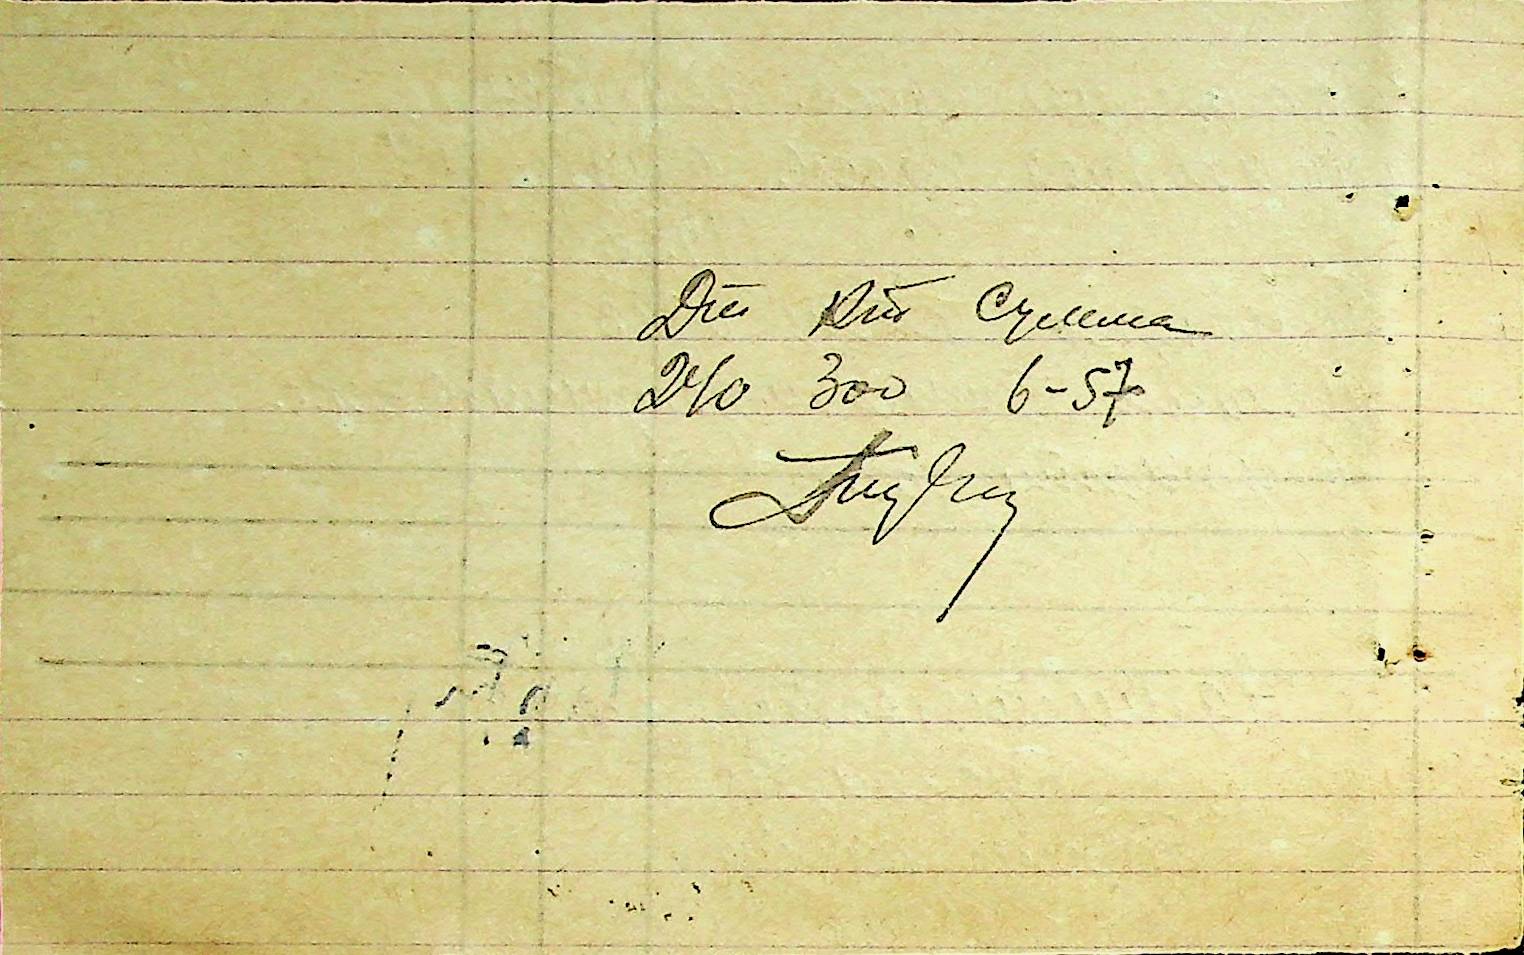 Дт Кт Сумма
240 300 6-57